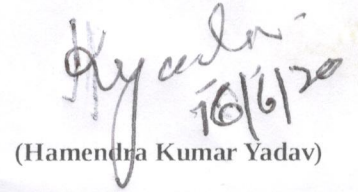 HKyadav
16/6/20
(Hamendra Kumar Yadav)